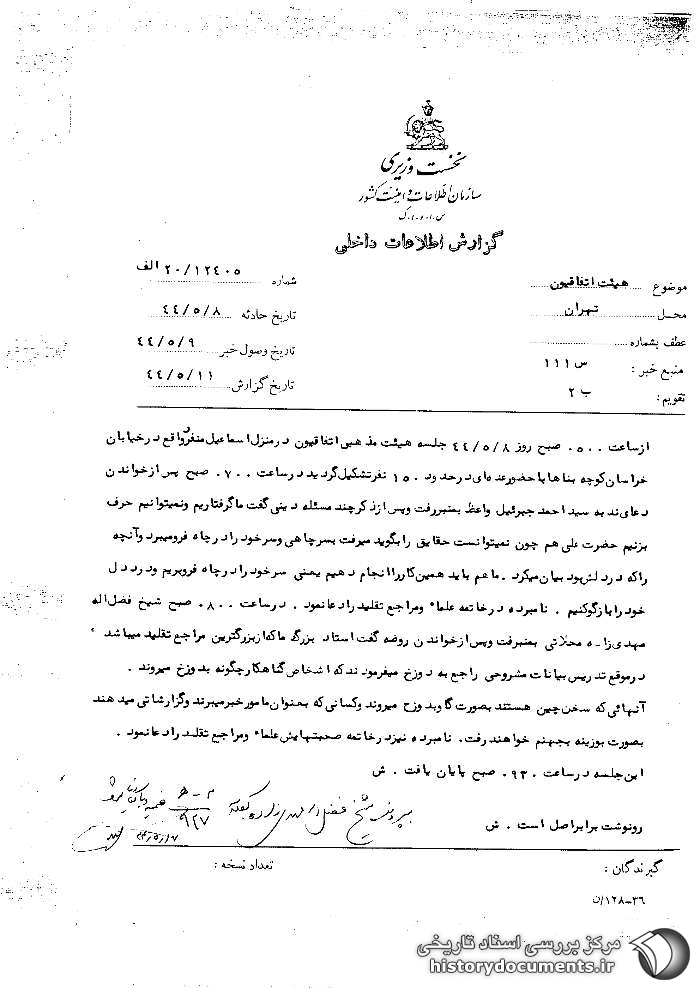 نخست وزیری
سازمان اطلاعات و امنیت کشور
س.ا.و.ا.ک
گزارش اطلاعات داخلی
موضوع هیئت اتفاقیون
شماره ۲۰/۱۲۴۰۵ الف
محل تهران
تاریخ حادثه ۴۴/۵/۸
عطف بشماره
تاریخ وصول خبر ۴۴/۵/۹
منبع خبر : س ۱۱۱
تاریخ گزارش ۴۴/۵/۱۱
تقویم: ب ۲
ازساعت ۵۰۰. صبح روز ۴۴/۵/۸ جلسه هیئت مذهبی اتفاقیون درمنزل اسماعیل منفرد واقع درخیابان
خراسان کوچه بناها با حضورعده ای درحدود ۱۵۰ نفرتشکیل گردید درساعت ۷۰۰. صبح پس ازخواندن
دعای ندبه سید احمد جبرئیلی واعظ بمنبررفت وپس ازذکرچند مسئله دینی گفت ماگرفتاریم ونمیتوانیم حرف
بزنیم حضرت علی هم چون نمیتوانست حقایق را بگوید میرفت بسرچاهی وسرخود رادرچاه فرومیبرد وآنچه
راکه دردلش بود بیان میکرد . ماهم باید همین کارراانجام دهیم یعنی سرخود رادرچاه فروبریم ودرد دل
خود رابازگوکنیم . نامبرده درخاتمه علماء ومراجع تقلید رادعانمود . درساعت ۸۰۰. صبح شیخ فضل اله
مهدی زاده محلاتی بمنبررفت وپس ازخواندن روضه گفت استاد بزرگ ماکه ازبزرگترین مراجع تقلید میباشد ،
درموقع تدریس بیانات مشروحی راجع به دوزخ میفرمودند که اشخاص گناهکارچگونه بدوزخ میروند .
آنهائی که سخن چین هستند بصورت گاوبدوزخ میروند وکسانی که بعنوان مامورخبرمیبرند وگزارشاتی میدهند
بصورت بوزینه بجهنم خواهند رفت . نامبرده نیزدرخاتمه صحبتهایش علماء ومراجع تقلید رادعانمود .
این جلسه درساعت ۹۳۰. صبح پایان یافت . ش
رونوشت برابراصل است . ش
بپرونده شیخ فضل اله مهدی زاده
گیرندگان :
تعداد نسخه :
۳۶-۱۲۸/ن
مرکز بررسی اسناد تاریخی
historydocuments.ir